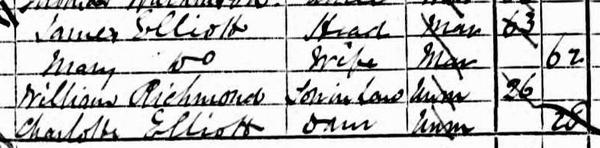 James Elliott Head Mar 63
Mary Do Wife Mar 62
William Richmond Son in Law Unm 26
Charlotte Elliott Daur Unm 28